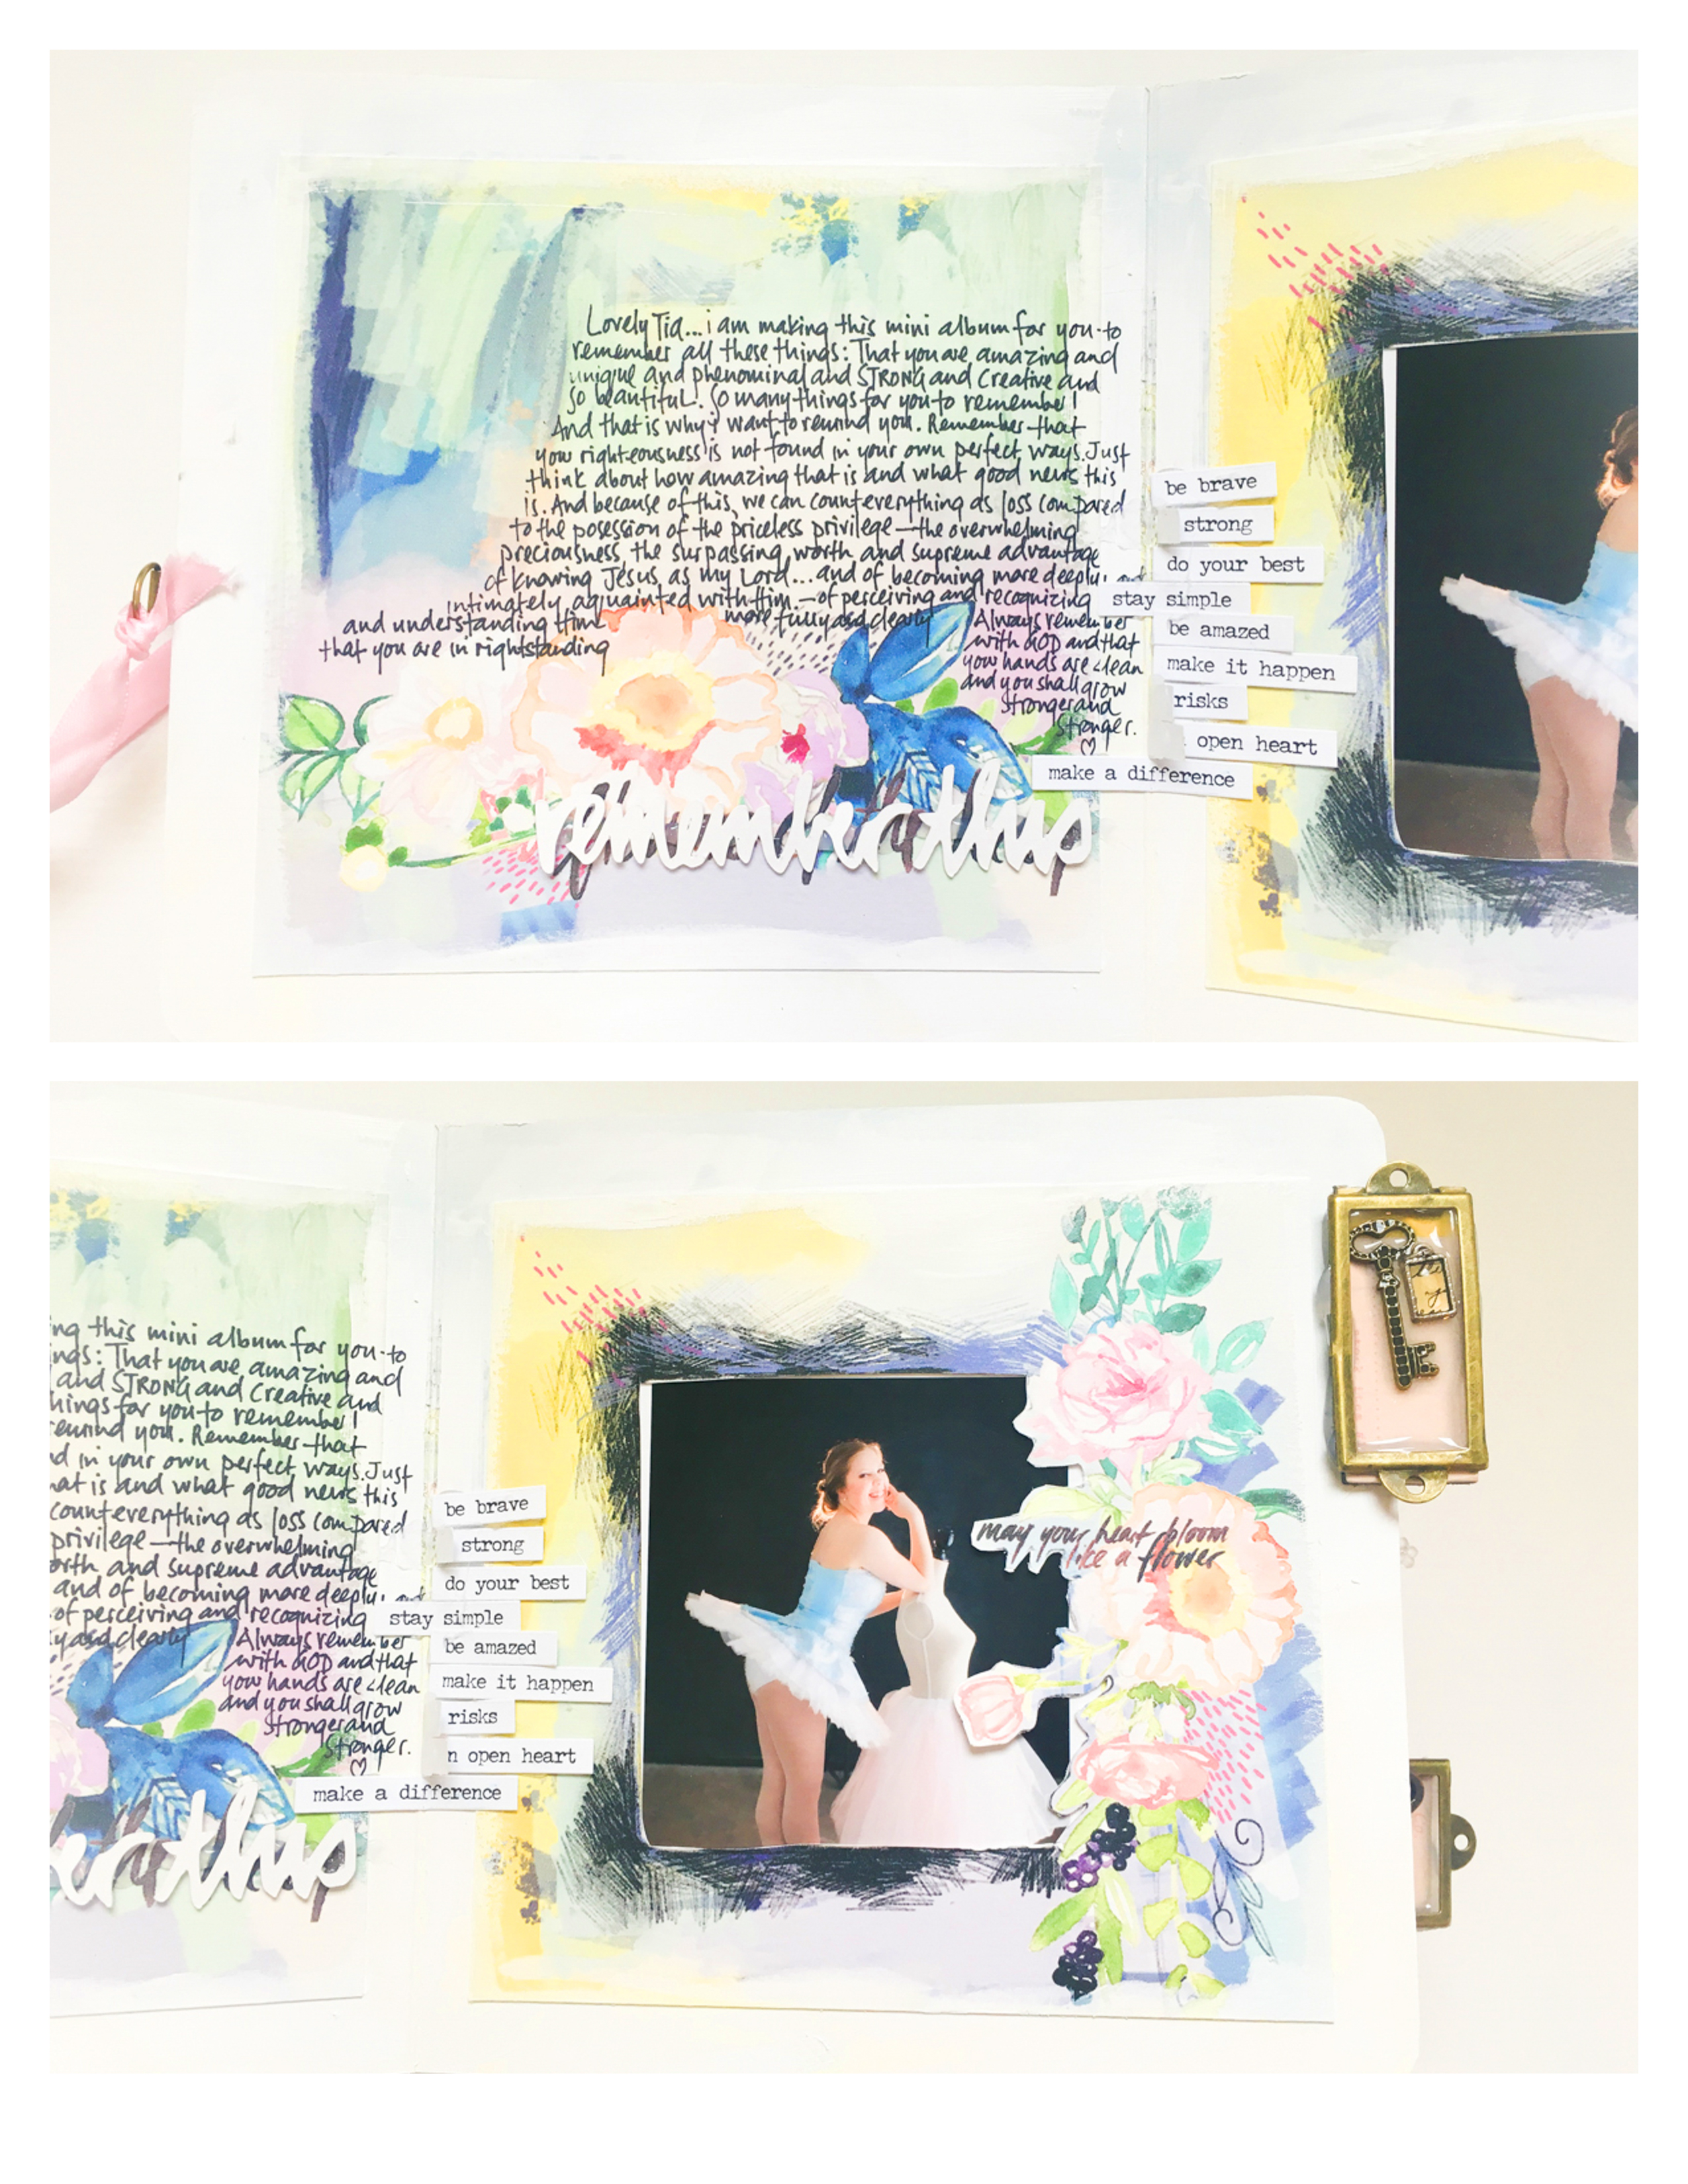 Lovely Tia...i am making this mini album for you to
remember all these things: That you are amazing and
unique and phenominal and STRONG and Creative and
so beautiful! So many things for you to remember!
And that is why i want to remind you. Remember that
your righteousness is not found in your own perfect ways. Just
think about how amazing that is and what good news this
is. And because of this, we can count everything as loss compared
to the posession of the priceless privilege—the overwhelming
preciousness, the surpassing worth and supreme advantage
of knowing Jesus, as my Lord...and of becoming more deeply and
intimately aquainted with Him.—of perceiving and recognizing
and understanding Him more fully and clearly
Always remember
that you are in rightstanding
with GOD and that
your hands are clean
and you shall grow
stronger and
stronger.
be brave
strong
do your best
stay simple
be amazed
make it happen
risks
open heart
make a difference
remember this
ng this mini album for you to
ngs: That you are amazing and
and STRONG and Creative and
hings for you to remember!
emind you. Remember that
d in your own perfect ways. Just
hat is and what good news this
count everything as loss compared
privilege—the overwhelming
orth and supreme advantage
and of becoming more deeply and
of perceiving and recognizing
y and clearly
Always remember
with GOD and that
your hands are clean
and you shall grow
stronger and
stronger.
be brave
strong
do your best
stay simple
be amazed
make it happen
risks
n open heart
make a difference
er this
may your heart bloom
like a flower